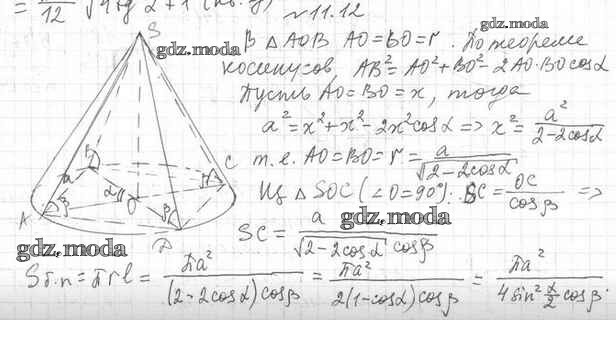 = /12 √4tg α + 1
№11.12
gdz.moda
В △AOB AO=BO=r. По теореме
gdz.moda
косинусов, AB²=AO²+BO²-2AO·BO cosα
Пусть AO=BO=x, тогда
a²=x²+x²-2x²cosα => x²= a²/2-2cosα
т.е. AO=BO=r= a/√2-2cosα
Из △SOC (∠O=90°): SC= OC/cosβ =>
SC= a/√2-2cosα cosβ
gdz.moda
S
B
C
a
α
O
β
β
β
A
D
gdz.moda
Sб.п=πrl= πa²/(2-2cosα)cosβ = πa²/2(1-cosα)cosβ = πa²/4sin² α/2 cosβ.